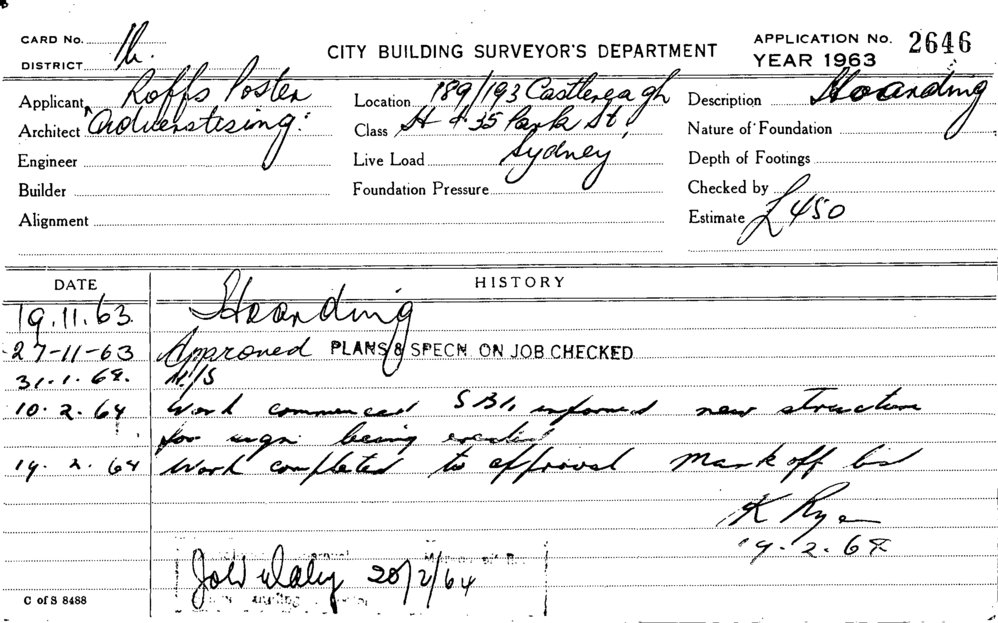 CARD No.
DISTRICT
CITY BUILDING SURVEYOR'S DEPARTMENT
APPLICATION No. 2646
YEAR 1963
Applicant Roffs Poster
Architect Advertising.
Engineer
Builder
Alignment
Location 189/193 Castlereagh
Class St & 35 Park St,
Live Load Sydney
Foundation Pressure
Description Hoarding
Nature of Foundation
Depth of Footings
Checked by
Estimate £450
DATE HISTORY
19.11.63 Hoarding
27-11-63 Approved PLANS & SPECN ON JOB CHECKED
31.1.64. N/S
10.2.64 Work commenced informed new structure
for sign being erected
19.2.64 Work completed to approval Mark off
K Ryan
19.2.64
20/2/64
C of S 8488